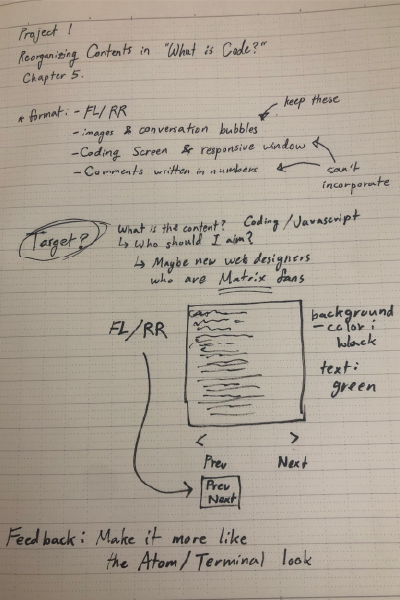 Project 1
Reorganizing Contents in "What is Code?"
Chapter 5.
* format: - FL/RR
keep these
- images & conversation bubbles
- Coding Screen & responsive window
- Comments written in numbers
can't
incorporate
Target?
What is the content? Coding/Javascript
↳ Who should I aim?
↳ Maybe new web designers
who are Matrix fans
FL/RR
background
- color:
black
text:
green
< >
Prev Next
Prev
Next
Feedback: Make it more like
the Atom/Terminal look